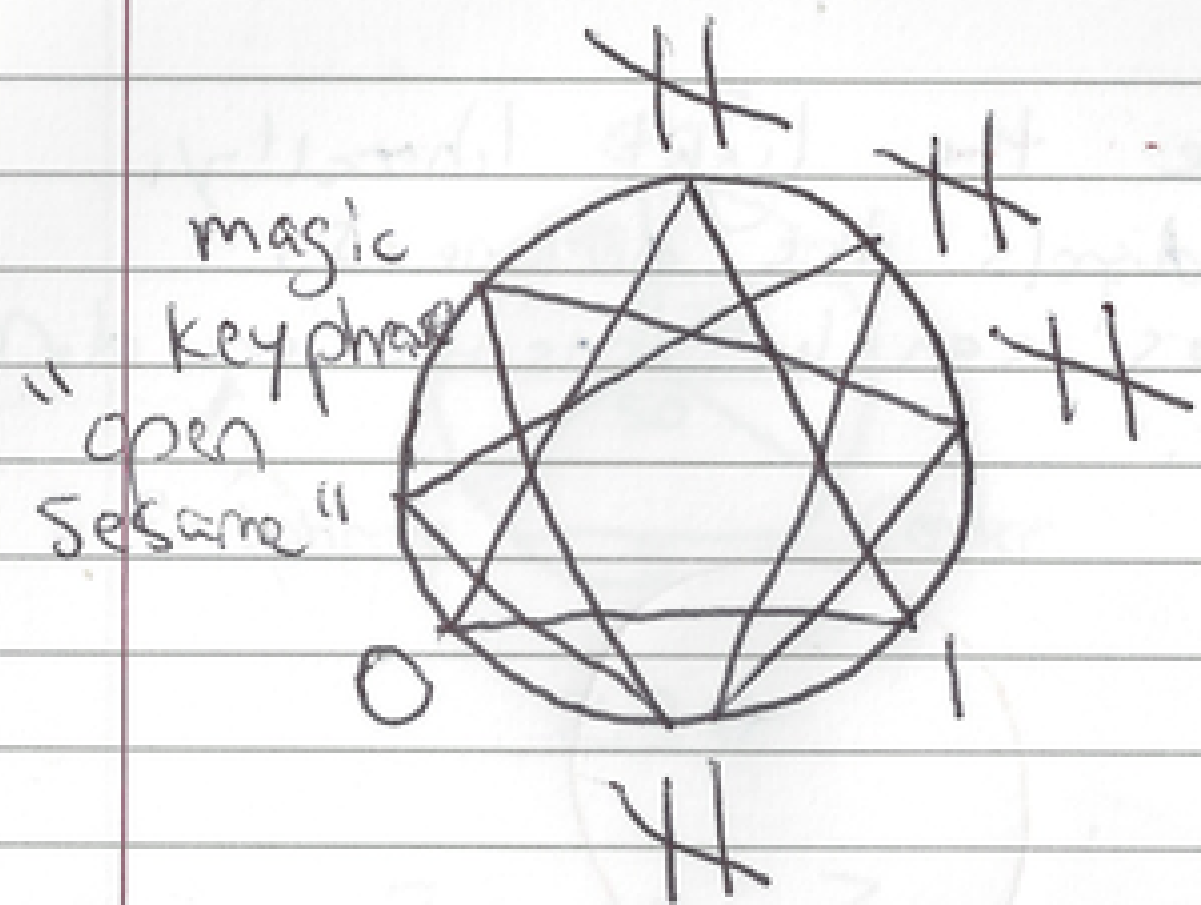 magic
keyphrase
"open
Sesame"
0
1